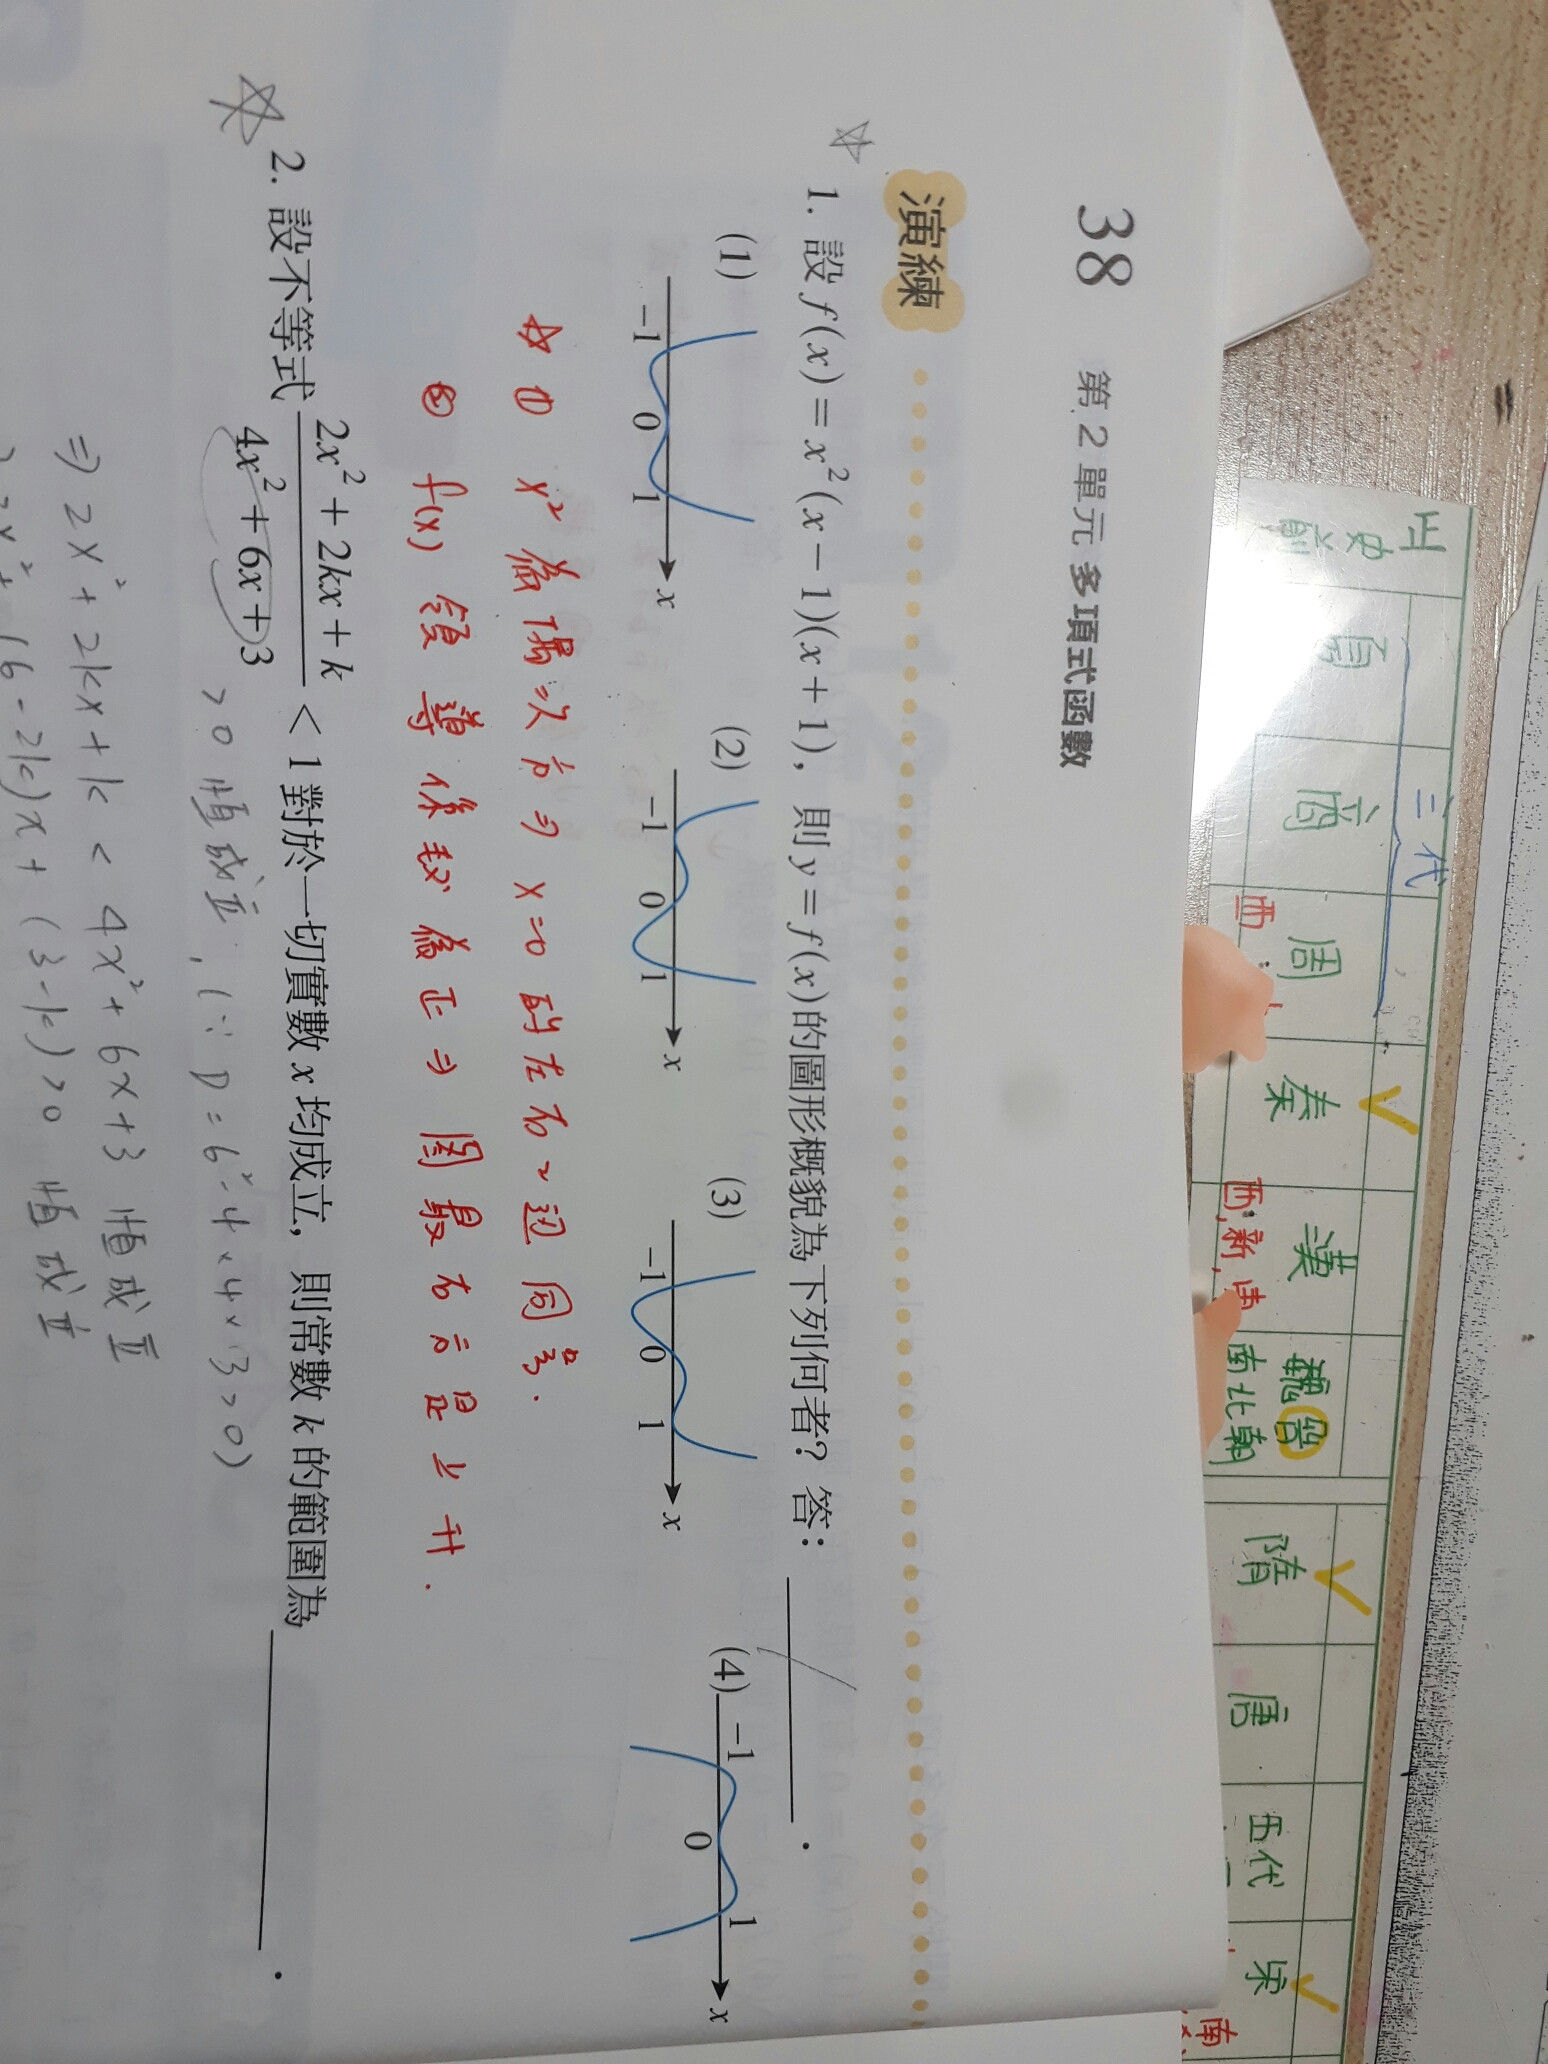 38 第2單元 多項式函數
演練
1. 設 f(x)=x²(x−1)(x+1),則 y=f(x)的圖形概貌為下列何者?答:______.
(1) (2) (3) (4)
−1 0 1 x
−1 0 1 x
−1 0 1 x
−1 0 1 x
① x² 為偶次方 ⇒ x=0 的左右2边同号.
② f(x) 領導係数為正 ⇒ 图最右方是上升.
2. 設不等式 (2x²+2kx+k)/(4x²+6x+3) < 1 對於一切實數 x 均成立,則常數 k 的範圍為______.
>0 恒成立,(∵ D = 6² - 4×4×3 > 0)
⇒ 2x² + 2kx + k < 4x² + 6x + 3 恒成立
2x² + (6-2k)x + (3-k) > 0 恒成立
正史
前
三代
夏
商
周
西
秦
漢
西,新,
魏晉
南北朝
隋
唐
五代
宋
南